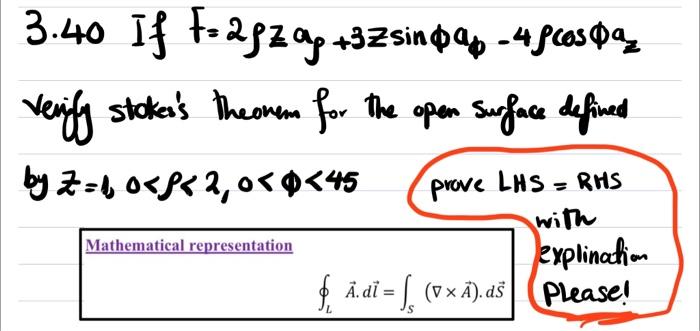 3.40 If F=2ρz aρ +3z sinϕ aϕ -4ρcosϕ az
Verify stoke's theorem for the open surface defined
by z=1, 0<ρ<2, 0<ϕ<45
prove LHS = RHS
with
explination
Please!
Mathematical representation
∮_L A⃗.dl⃗ = ∫_S (∇ × A⃗).dS⃗